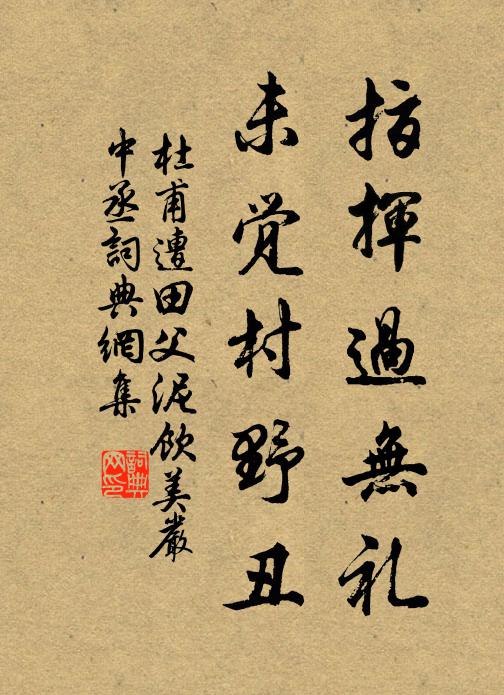 指揮過無礼
未覚村野丑
杜甫遭田父泥飲美嚴
中丞詞典網集
詞典网印